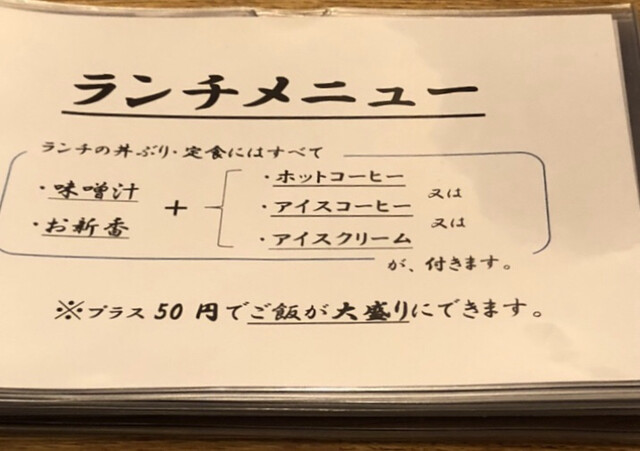 ランチメニュー
ランチの丼ぶり・定食にはすべて
・味噌汁
・お新香
+
・ホットコーヒー 又は
・アイスコーヒー 又は
・アイスクリーム
が、付きます。
※プラス 50 円でご飯が大盛りにできます。